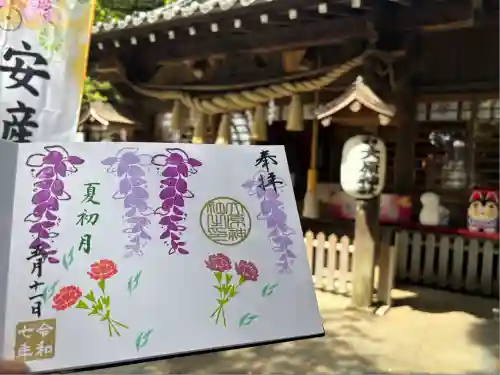 安産
奉拝
夏初月
五月十一日
令和
七年
大原神